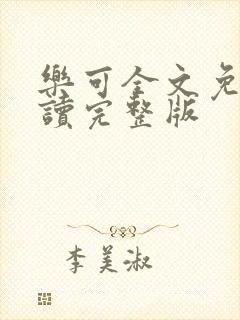 樂可全文免
讀完整版
李美淑